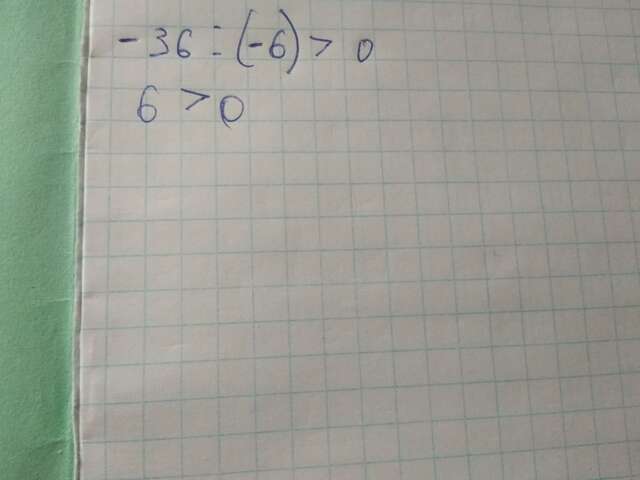 -36:(-6) > 0
6 > 0